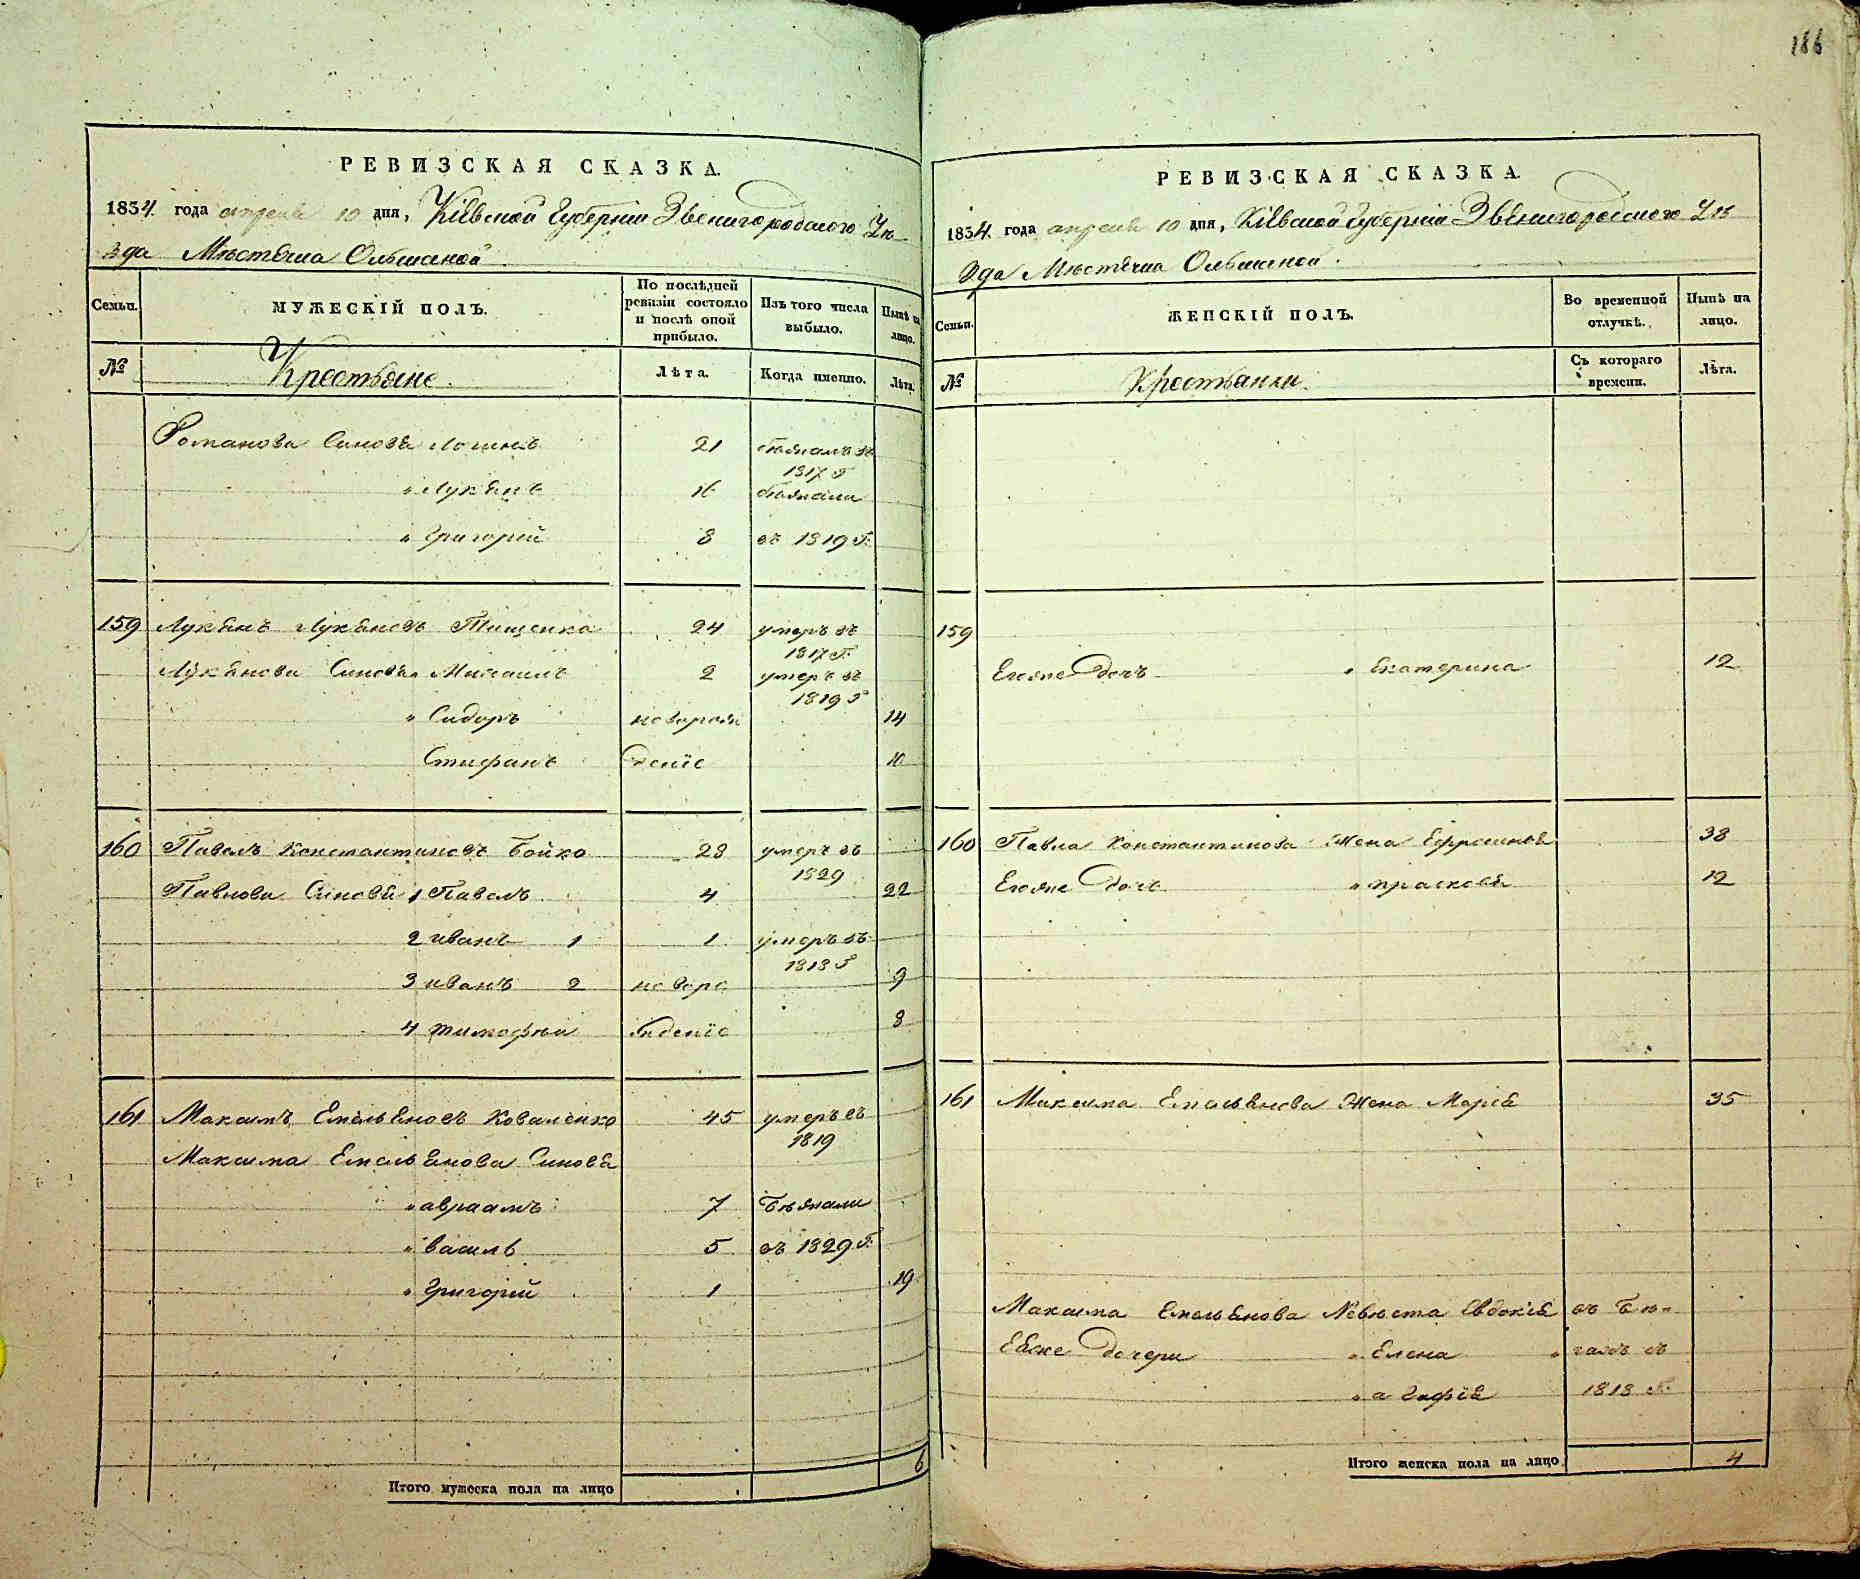 186
РЕВИЗСКАЯ СКАЗКА.
1834. года апреля 10 дня, Кіевской Губерніи Звенигородского Уѣ-
зда Мѣстечка Ольшаной
Семьи.
МУЖЕСКІЙ ПОЛЪ.
По послѣдней ревизіи состояло и послѣ оной прибыло.
Изъ того числа выбыло.
Нынѣ на лицо.
№
Крестьяне.
Лѣта.
Когда именно.
Лѣта.
Романова Синовья Логинъ 21 бѣжалъ въ
1817 Г
" Лукянъ 16 бѣжали
" Григорій 8 въ 1819 Г.
159 Лукянъ Лукяновъ Тищенко 24 умеръ въ
1817 Г.
Лукянова Синовья Михаилъ 2 умеръ въ
1819 Г
" Сидоръ новорож 14
Стефанъ деніе 10
160 Павелъ Константиновъ Бойко 28 умеръ въ
1829
Павлови Синовья 1 Павелъ 4 22
2 иванъ 1 1 умеръ въ
1818 Г
3 иванъ 2 новоро 9
4 тимофѣи жденіе 8
161 Максимъ Емельяновъ Коваленко 45 умеръ въ
1819
Максима Емельянова Синовя
" авраамъ 7 бѣжали
" василь 5 въ 1829 Г.
" Григорій 1 19
Итого мужеска пола на лицо 6
РЕВИЗСКАЯ СКАЗКА.
1834. года апреля 10 дня, Кіевской Губерніи Звенигородского Уѣ
зда Мѣстечка Ольшаной.
Семьи.
ЖЕНСКІЙ ПОЛЪ.
Во временной отлучкѣ.
Нынѣ на лицо.
№
Крестьянки.
Съ котораго времени.
Лѣта.
159
Егоже Дочь " Екатерина 12
160 Павла Константинова Жена Ефросиния 38
Егоже Дочь " прасковя 12
161 Максима Емельянова Жена Марія 35
Максима Емельянова Невѣста Евдокія въ бѣ-
Еяже дочери " Елена " гахъ съ
" агафія 1818 Г.
Итого женска пола на лицо 4